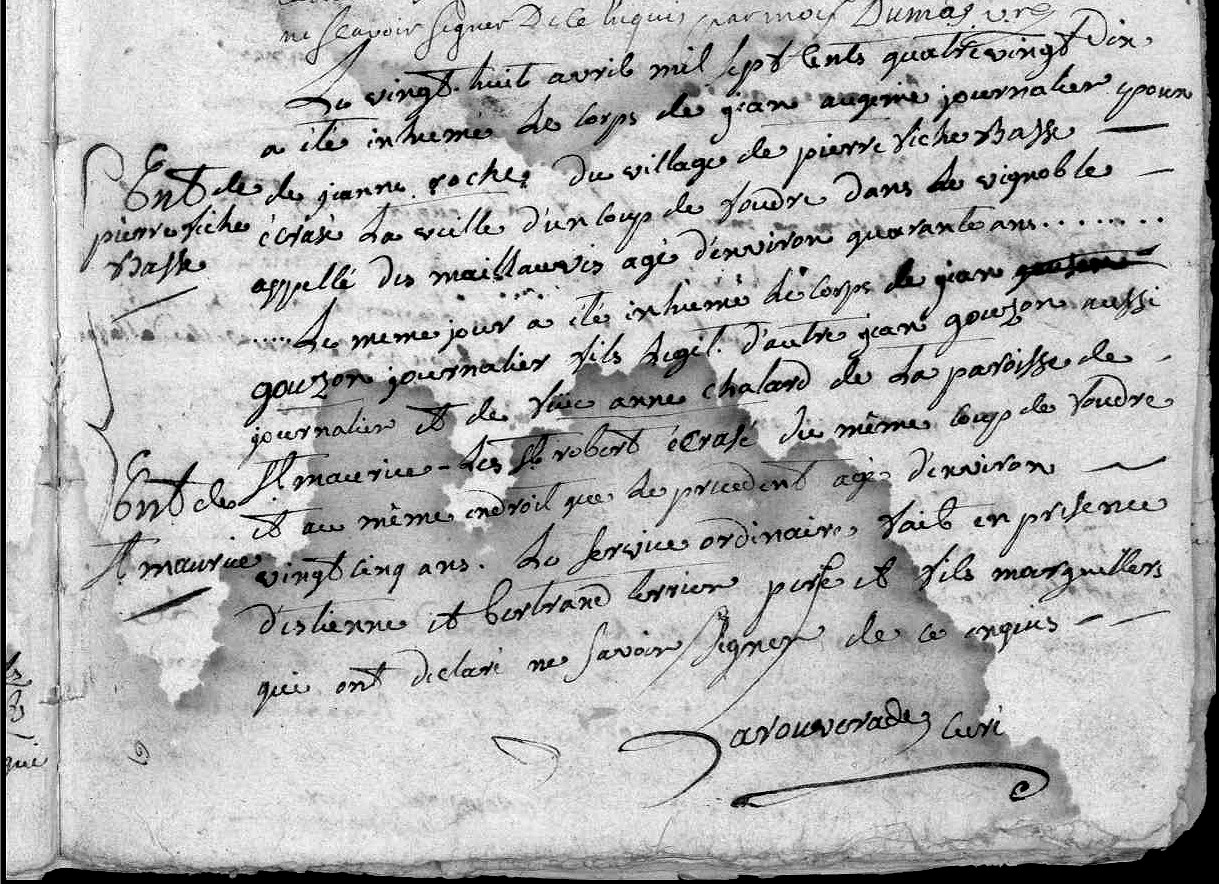 ne sçavoir signer De ce enquis par moy Dumas vre
Le vingt huit avril mil sept cents quatre vingt dix
a été inhumé le corps de jean augerie journalier époux
Ent de
pierrefiche
Basse
de jeanne roche, du village de pierrefiche Basse
écrasé la veille d'un coup de foudre dans le vignoble
appellé des maillauvis agé d'environ quarante ans........
.....Le meme jour a été inhumé le corps de jean
gouzon journalier fils legit. d'autre jean gouzon aussi
journalier et de feüe anne chalard de la paroisse de
Ent de
St maurice
St maurice-les St robert écrasé du même coup de foudre
et au même endroit que le precedent agé d'environ
vingt cinq ans. Le service ordinaire fait en presence
d'estienne et bertrand terrier pere et fils marguillers
qui ont declaré ne savoir signer de ce enquis
Larouverade, Curé